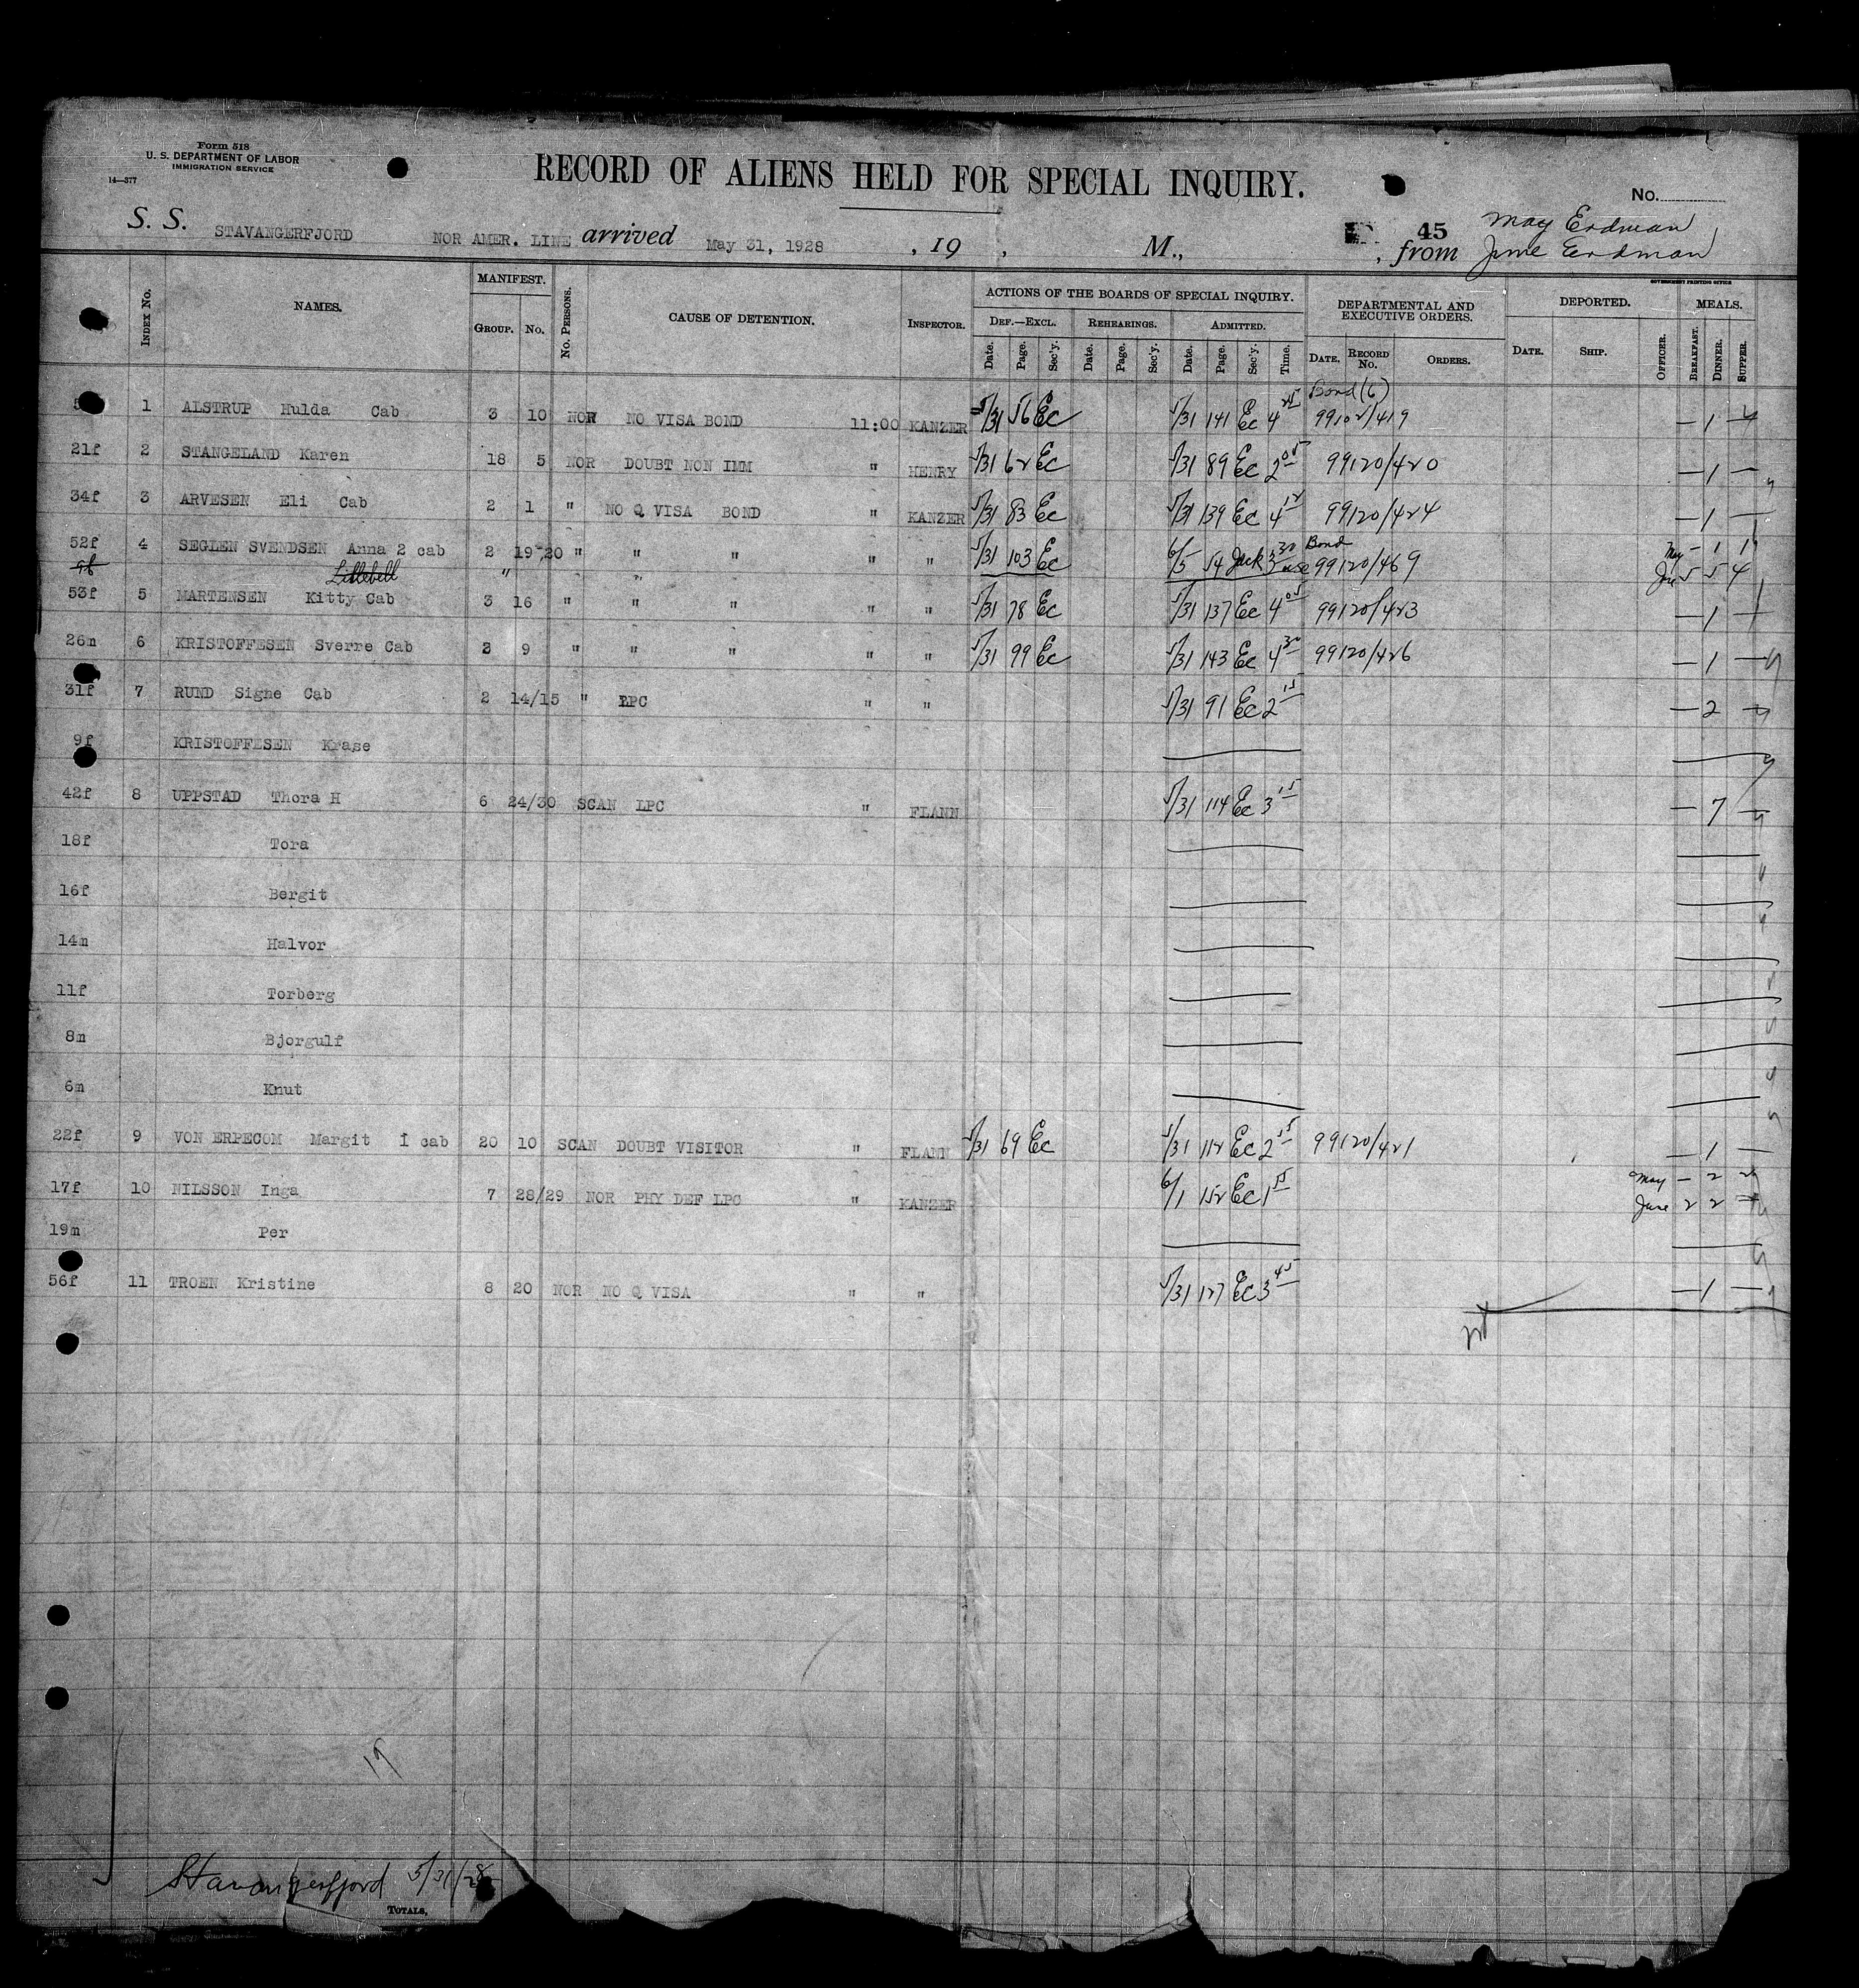 Form 518
U. S. DEPARTMENT OF LABOR
IMMIGRATION SERVICE
14—377
RECORD OF ALIENS HELD FOR SPECIAL INQUIRY.
No.
S. S. STAVANGERFJORD NOR AMER. LINE arrived May 31, 1928 , 19 , M., 45 , from May Erdman
June Erdman
GOVERNMENT PRINTING OFFICE
INDEX No. NAMES. MANIFEST. GROUP. No. No. PERSONS. CAUSE OF DETENTION. INSPECTOR. ACTIONS OF THE BOARDS OF SPECIAL INQUIRY. DEF.—EXCL. Date. Page. Sec'y. REHEARINGS. Date. Page. Sec'y. ADMITTED. Date. Page. Sec'y. Time. DEPARTMENTAL AND EXECUTIVE ORDERS. DATE. RECORD No. ORDERS. DEPORTED. DATE. SHIP. OFFICER. MEALS. BREAKFAST. DINNER. SUPPER.
Bond (6)
1 ALSTRUP Hulda Cab 3 10 NOR NO VISA BOND 11:00 KANZER 5/31 56 Ec 5/31 141 Ec 4 25 99102/419 — 1 —
21f 2 STANGELAND Karen 18 5 NOR DOUBT NON IMM " HENRY 5/31 62 Ec 5/31 89 Ec 2 05 99120/420 — 1 —
34f 3 ARVESEN Eli Cab 2 1 " NO Q VISA BOND " KANZER 5/31 83 Ec 5/31 139 Ec 4 12 99120/424 — 1 —
52f 4 SEGLEN SVENDSEN Anna 2 cab 2 19-20 " " " " " 5/31 103 Ec 6/5 54 Jack 3 30 Bond 99120/469 May — 1 1
9f Lillebell " " June 5 5 4
53f 5 MARTENSEN Kitty Cab 3 16 " " " " " 5/31 78 Ec 5/31 137 Ec 4 05 99120/423 — 1 —
26m 6 KRISTOFFESEN Sverre Cab 3 9 " " " " " 5/31 99 Ec 5/31 143 Ec 4 30 99120/426 — 1 —
31f 7 RUND Signe Cab 2 14/15 " LPC " " 5/31 91 Ec 2 15 — 2 —
9f KRISTOFFESEN Krase
42f 8 UPPSTAD Thora H 6 24/30 SCAN LPC " FLANN 5/31 114 Ec 3 15 — 7 —
18f Tora
16f Bergit
14m Halvor
11f Torberg
8m Bjorgulf
6m Knut
22f 9 VON ERPECOM Margit 1 cab 20 10 SCAN DOUBT VISITOR " FLANN 5/31 69 Ec 5/31 112 Ec 2 15 99120/421 — 1 —
17f 10 NILSSON Inga 7 28/29 NOR PHY DEF LPC " KANZER 6/1 152 Ec 1 55 May — 2 2
June 2 2 —
19m Per
56f 11 TROEN Kristine 8 20 NOR NO Q VISA " " 5/31 127 Ec 3 45 — 1 —
19
Stavangerfjord 5/31/28
TOTALS,